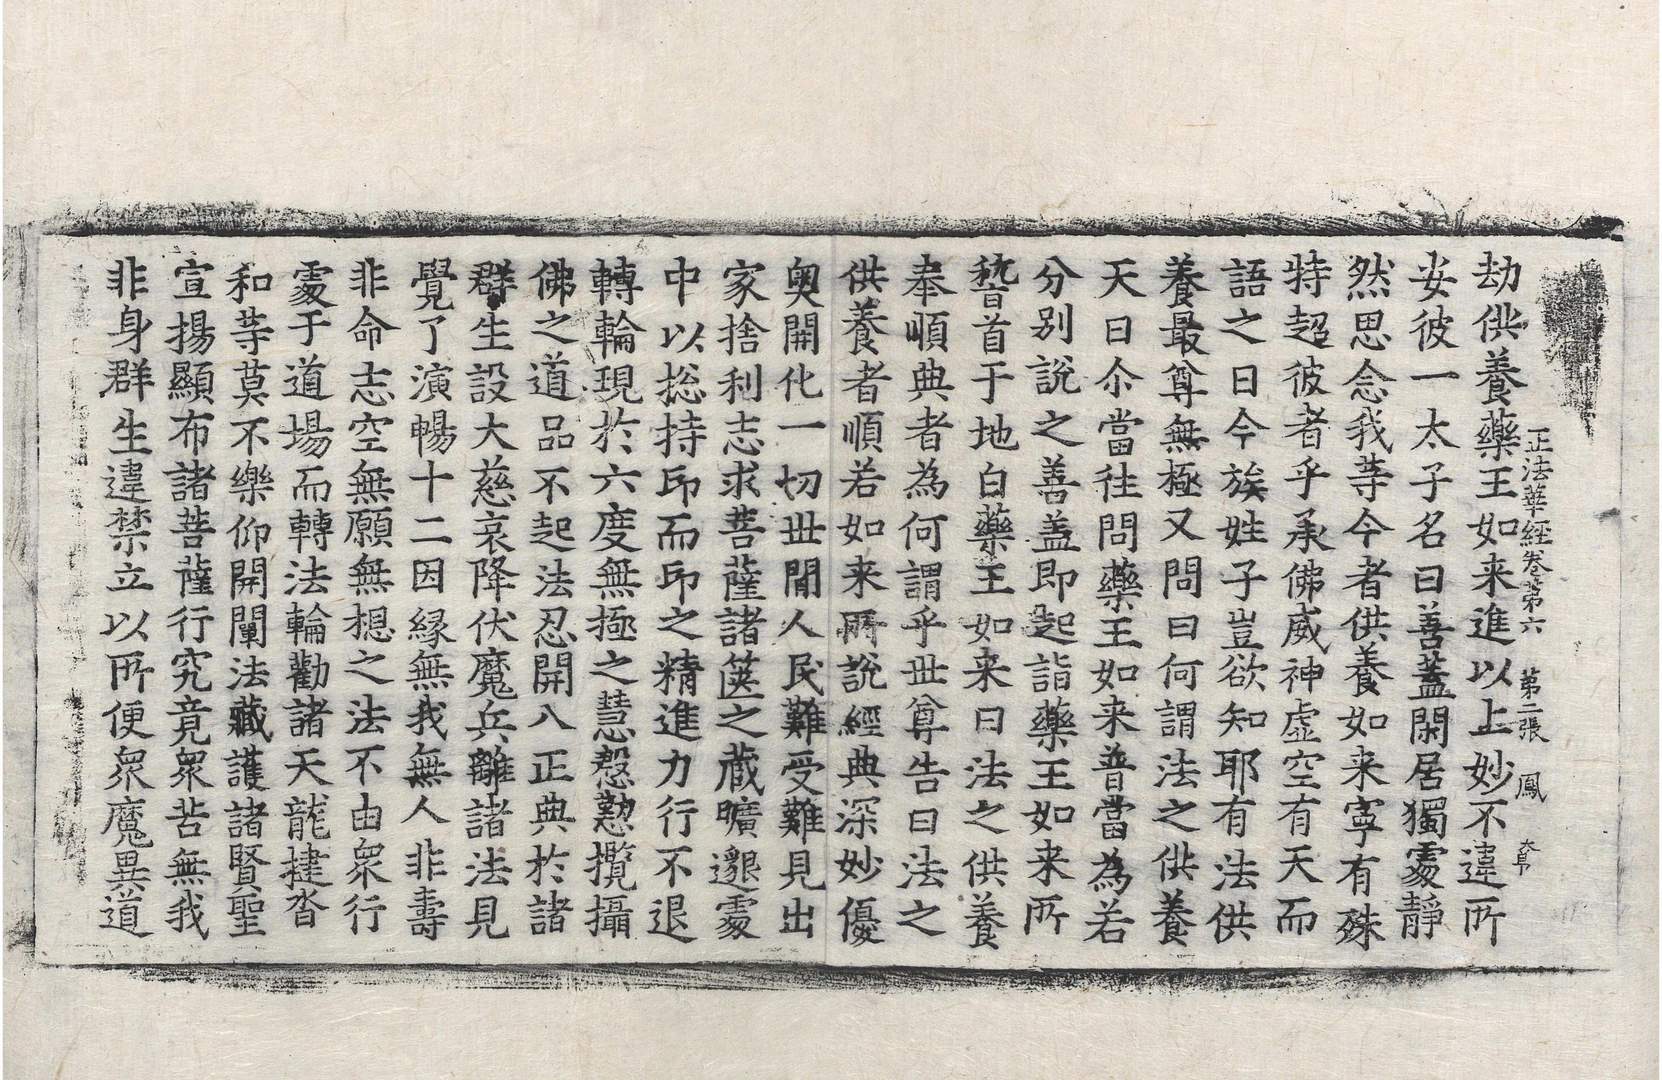 正法華經卷第六 第二張 鳳
劫供養藥王如来進以上妙不違所
安彼一太子名曰善蓋閑居獨處靜
然思念我等今者供養如来寧有殊
特超彼者乎承佛威神虛空有天而
語之曰今族姓子豈欲知耶有法供
養最尊無極又問曰何謂法之供養
天曰尒當往問藥王如来普當為若
分別說之善盖即起詣藥王如来所
稽首于地白藥王如来曰法之供養
奉順典者為何謂乎世尊告曰法之
供養者順若如来所說經典深妙優
奧開化一切世閒人民難受難見出
家捨利志求菩薩諸篋之藏曠邈處
中以捴持印而印之精進力行不退
轉輪現於六度無極之慧慇懃攬攝
佛之道品不起法忍開八正典於諸
群生設大慈哀降伏魔兵離諸法見
覺了演暢十二因縁無我無人非壽
非命志空無願無想之法不由衆行
處于道場而轉法輪勸諸天龍揵沓
和等莫不樂仰開闡法藏護諸賢聖
宣揚顯布諸菩薩行究竟衆苦無我
非身群生違禁立以所便衆魔異道